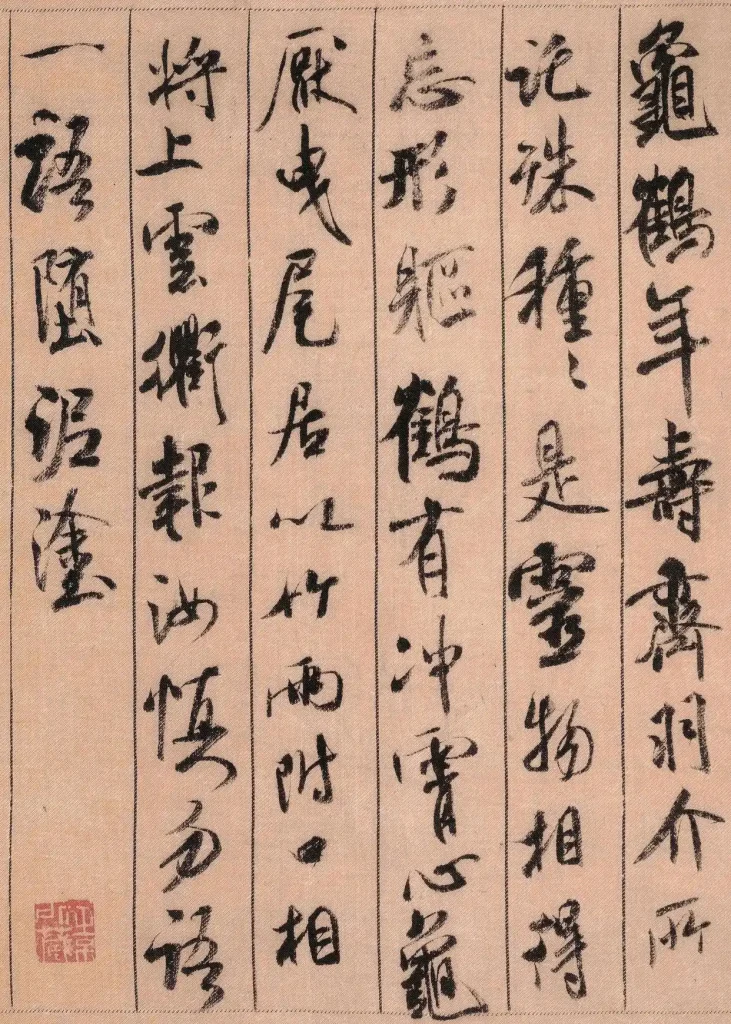 龜鶴年壽齊羽介所
託殊種種是靈物相得
忘形軀鶴有冲霄心龜
厭曳尾居以竹兩附口相
將上雲衢報汝慎勿語
一語墮泥塗